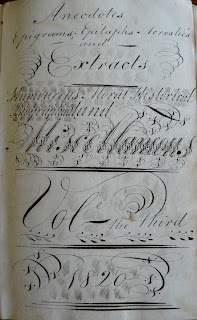 Anecdotes
Epigrams. Epitaphs. Acrostics
and
Extracts
Humourous. Moral. Historical
Biographical and
Miscellaneous
Vol.e
the Third
1820